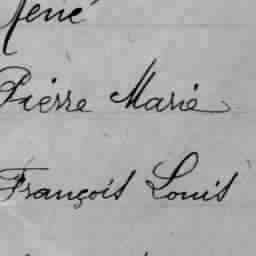 René
Pierre Marie
François Louis